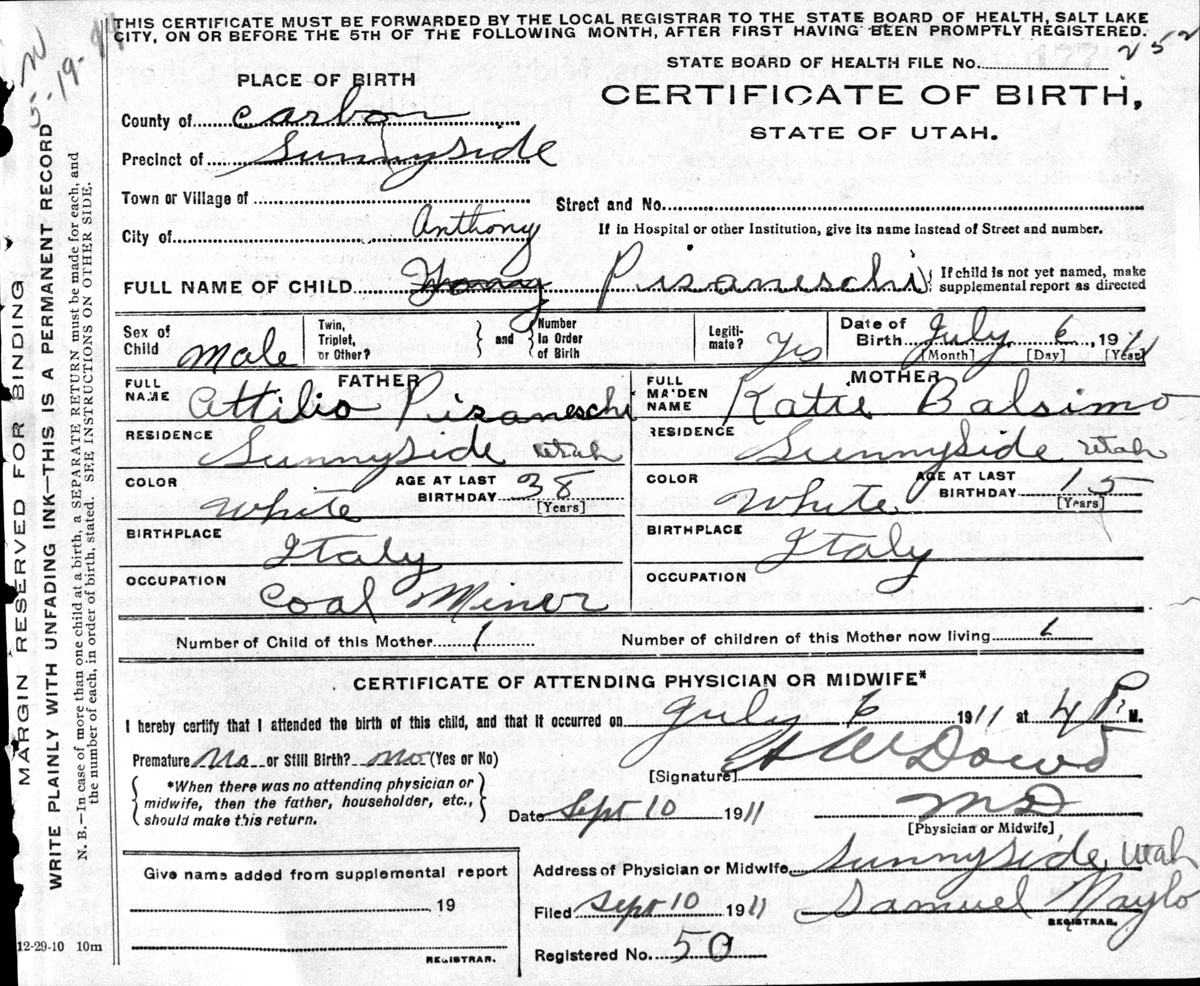 THIS CERTIFICATE MUST BE FORWARDED BY THE LOCAL REGISTRAR TO THE STATE BOARD OF HEALTH, SALT LAKE
CITY, ON OR BEFORE THE 5TH OF THE FOLLOWING MONTH, AFTER FIRST HAVING BEEN PROMPTLY REGISTERED.
252
STATE BOARD OF HEALTH FILE No.
PLACE OF BIRTH
CERTIFICATE OF BIRTH,
STATE OF UTAH.
County of Carbon
Precinct of Sunnyside
Town or Village of
Street and No.
City of
If in Hospital or other Institution, give its name instead of Street and number.
Anthony
FULL NAME OF CHILD Pisaneschi { If child is not yet named, make
supplemental report as directed
Sex of Child Male
Twin, Triplet, or Other? } and { Number in Order of Birth
Legiti-mate? Yes
Date of Birth July 6, 1911
[Month] [Day] [Year]
FATHER
FULL NAME Attilio Pisaneschi
MOTHER
FULL MAIDEN NAME Katie Balsimo
RESIDENCE Sunnyside Utah
RESIDENCE Sunnyside Utah
COLOR White AGE AT LAST BIRTHDAY 38 [Years]
COLOR White AGE AT LAST BIRTHDAY 15 [Years]
BIRTHPLACE Italy
BIRTHPLACE Italy
OCCUPATION Coal Miner
OCCUPATION
Number of Child of this Mother 1 Number of children of this Mother now living 1
CERTIFICATE OF ATTENDING PHYSICIAN OR MIDWIFE*
I hereby certify that I attended the birth of this child, and that it occurred on July 6 1911 at 4 P M.
Premature No or Still Birth? No (Yes or No)
[Signature] Dowd
*When there was no attending physician or
midwife, then the father, householder, etc.,
should make this return.
Date Sept 10 1911 MD
[Physician or Midwife]
Give name added from supplemental report
19
REGISTRAR.
Address of Physician or Midwife Sunnyside, Utah
Filed Sept 10 1911 Samuel Naylo
REGISTRAR.
Registered No. 50
12-29-10 10m
MARGIN RESERVED FOR BINDING
WRITE PLAINLY WITH UNFADING INK—THIS IS A PERMANENT RECORD
N. B.—In case of more than one child at a birth, a SEPARATE RETURN must be made for each, and
the number of each, in order of birth, stated. SEE INSTRUCTIONS ON OTHER SIDE.